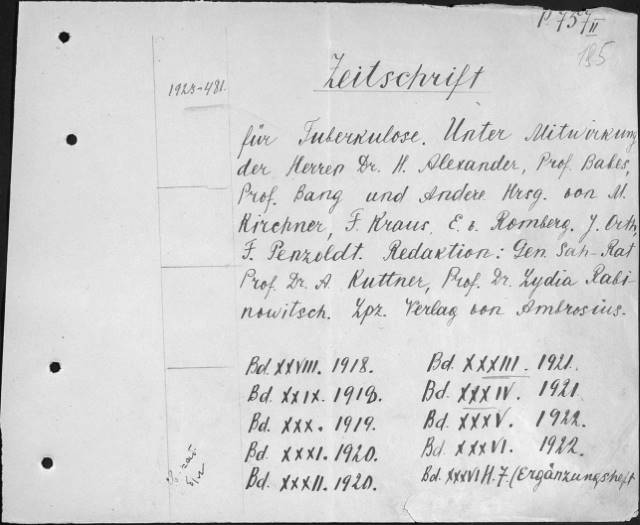 P. 757/II
195
1923-481.
Zeitschrift
für Tuberkulose. Unter Mitwirkung
der Herren Dr. H. Alexander, Prof. Babes,
Prof. Bang und Andere Hrsg. von M.
Kirchner, F. Kraus, E. v. Romberg. J. Orth,
F. Penzoldt. Redaktion: Geh San-Rat
Prof. Dr. A. Kuttner, Prof. Dr. Lydia Rabi-
nowitsch. Lpz. Verlag von Ambrosius.
Bd. XXVIII. 1918.
Bd. XXIX. 1918.
Bd. XXX. 1919.
Bd. XXXI. 1920.
Bd. XXXII. 1920.
Bd. XXXIII. 1921.
Bd. XXXIV. 1921
Bd. XXXV. 1922.
Bd. XXXVI. 1922.
Bd. XXXVI H. 7. (Ergänzungsheft